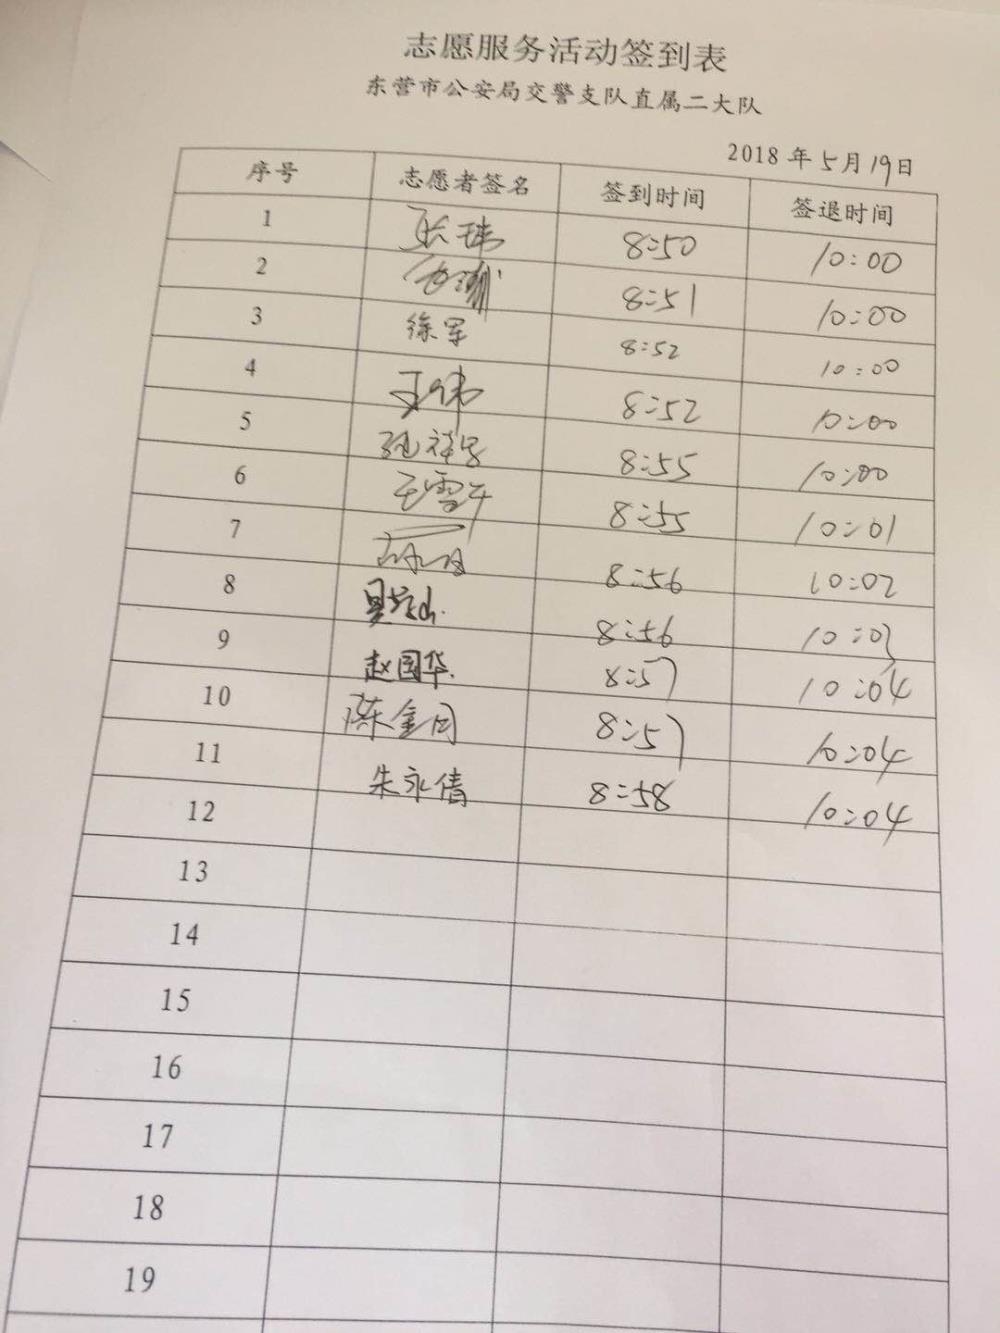 志愿服务活动签到表
东营市公安局交警支队直属二大队
2018 年 5 月 19 日
序号 志愿者签名 签到时间 签退时间
1 张瑋 8:50 10:00
2 8:51 10:00
3 徐军 8:52 10:00
4 王伟 8:52 10:00
5 8:55 10:00
6 王雪 8:55 10:01
7 8:56 10:02
8 8:56 10:03
9 赵国华. 8:57 10:04
10 陈金同 8:57 10:04
11 朱永倩 8:58 10:04
12
13
14
15
16
17
18
19